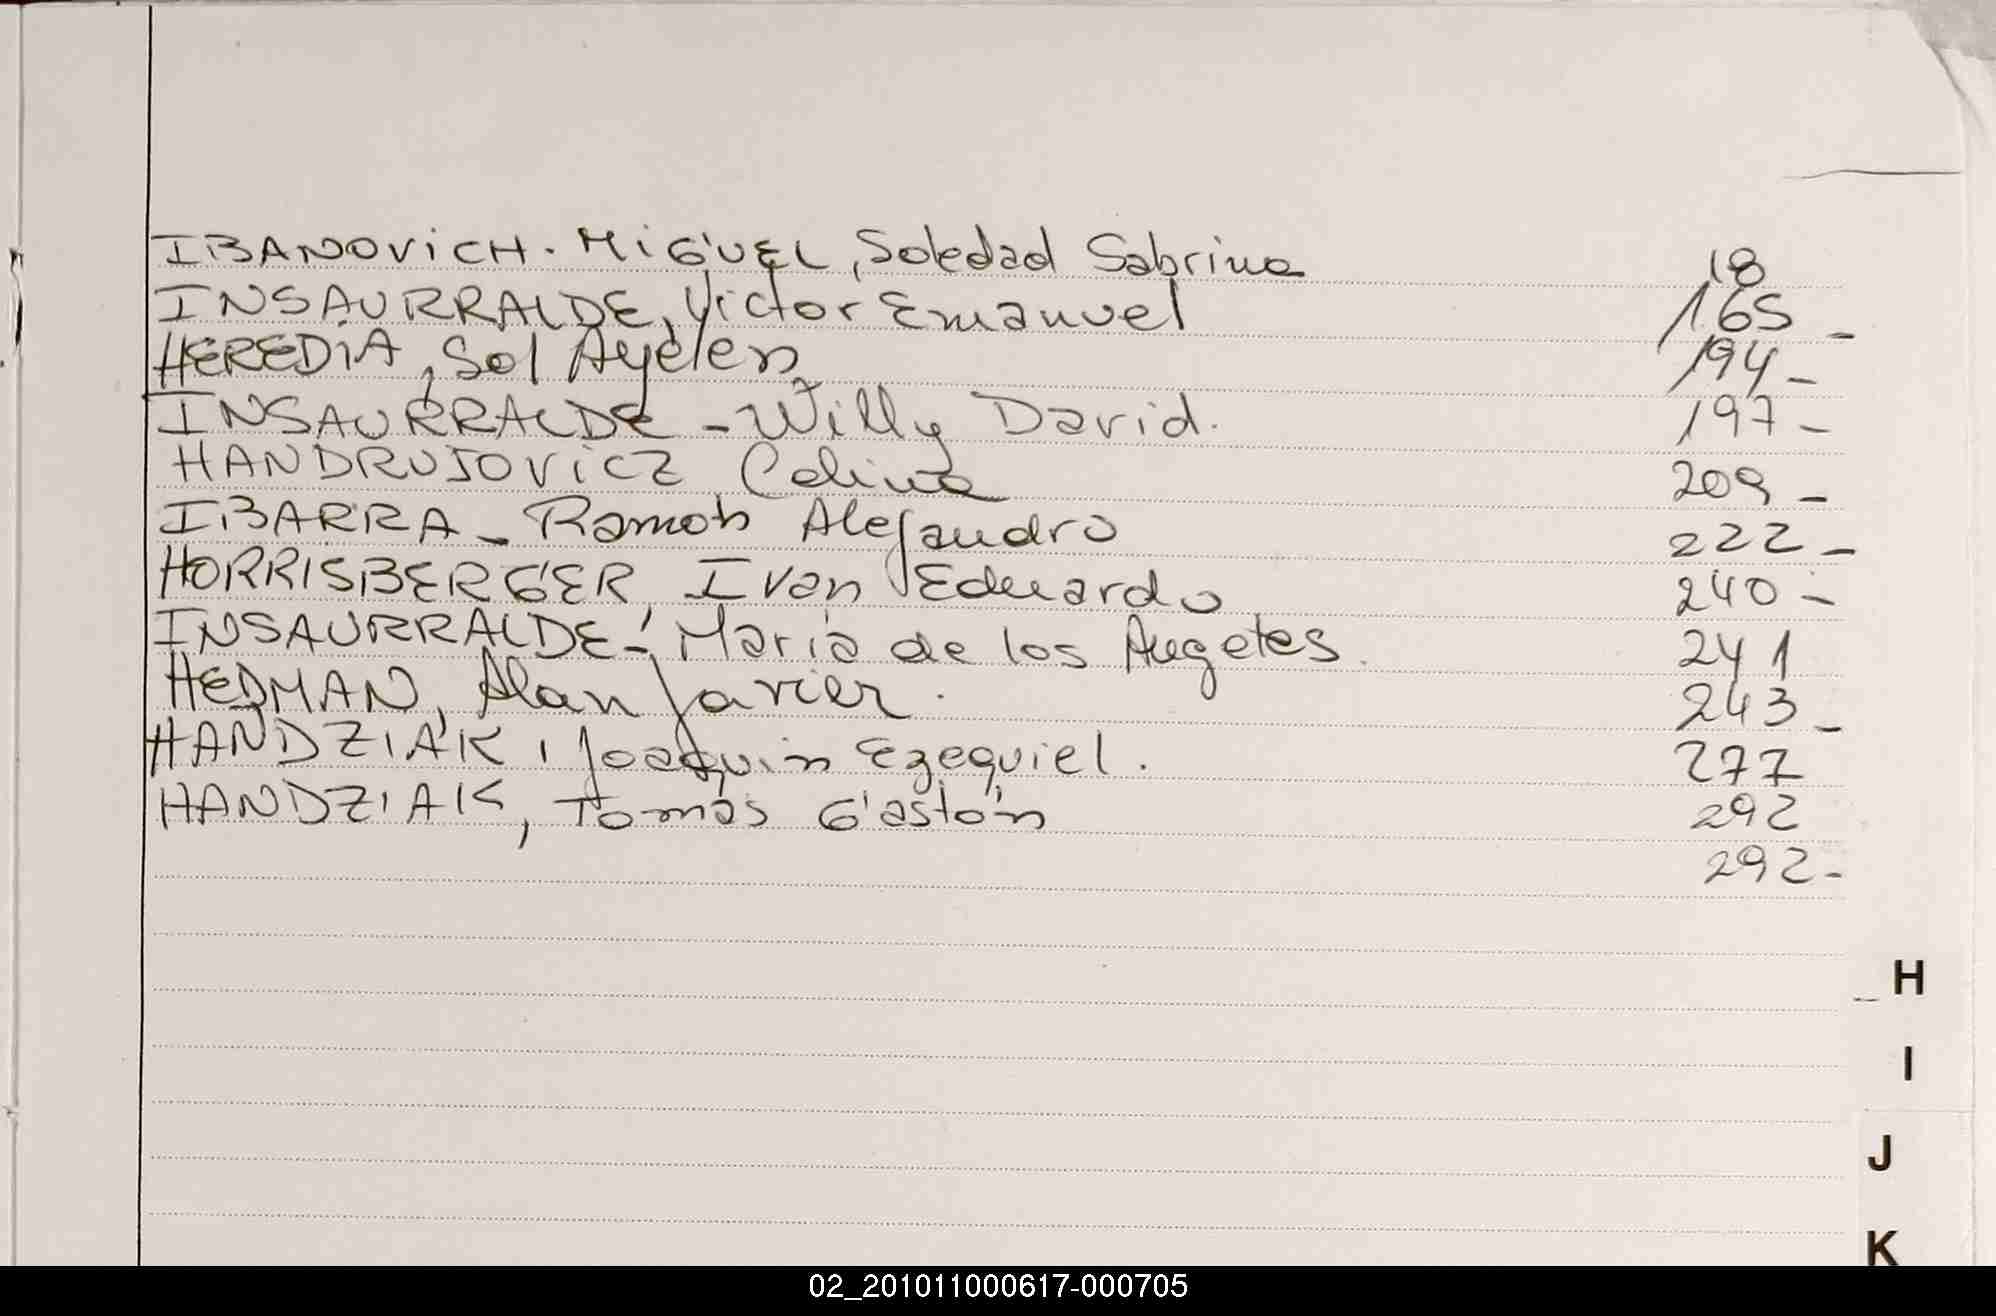 IBANOVICH. MIGUEL, Soledad Sabrina 18
INSAURRALDE, Victor Emanuel 165 -
HEREDIA, Sol Ayelen 194 -
INSAURRALDE - Willy David. 197 -
HANDRUJOVICZ Celina 209 -
IBARRA - Ramon Alejandro 222 -
HORRISBERGER, Ivan Eduardo 240 -
INSAURRALDE - María de los Angeles. 241
HEDMAN, Alan Javier. 243 -
HANDZIAK, Joaquin Ezequiel. 277
HANDZIAK, Tomas Gastón 292
292 -
H
I
J
K
02_201011000617-000705